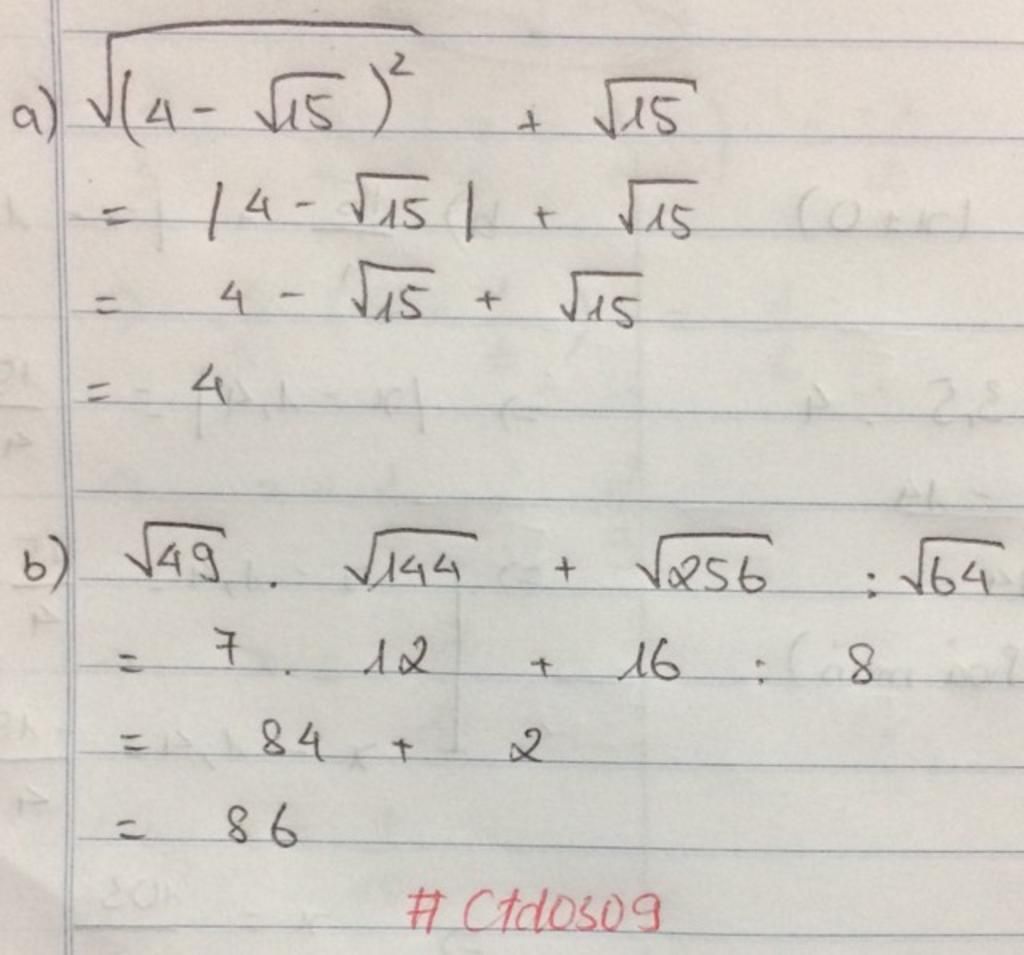 a) √(4 - √15)² + √15
= |4 - √15| + √15
= 4 - √15 + √15
= 4
b) √49 . √144 + √256 : √64
= 7 . 12 + 16 : 8
= 84 + 2
= 86
# Ctd0309